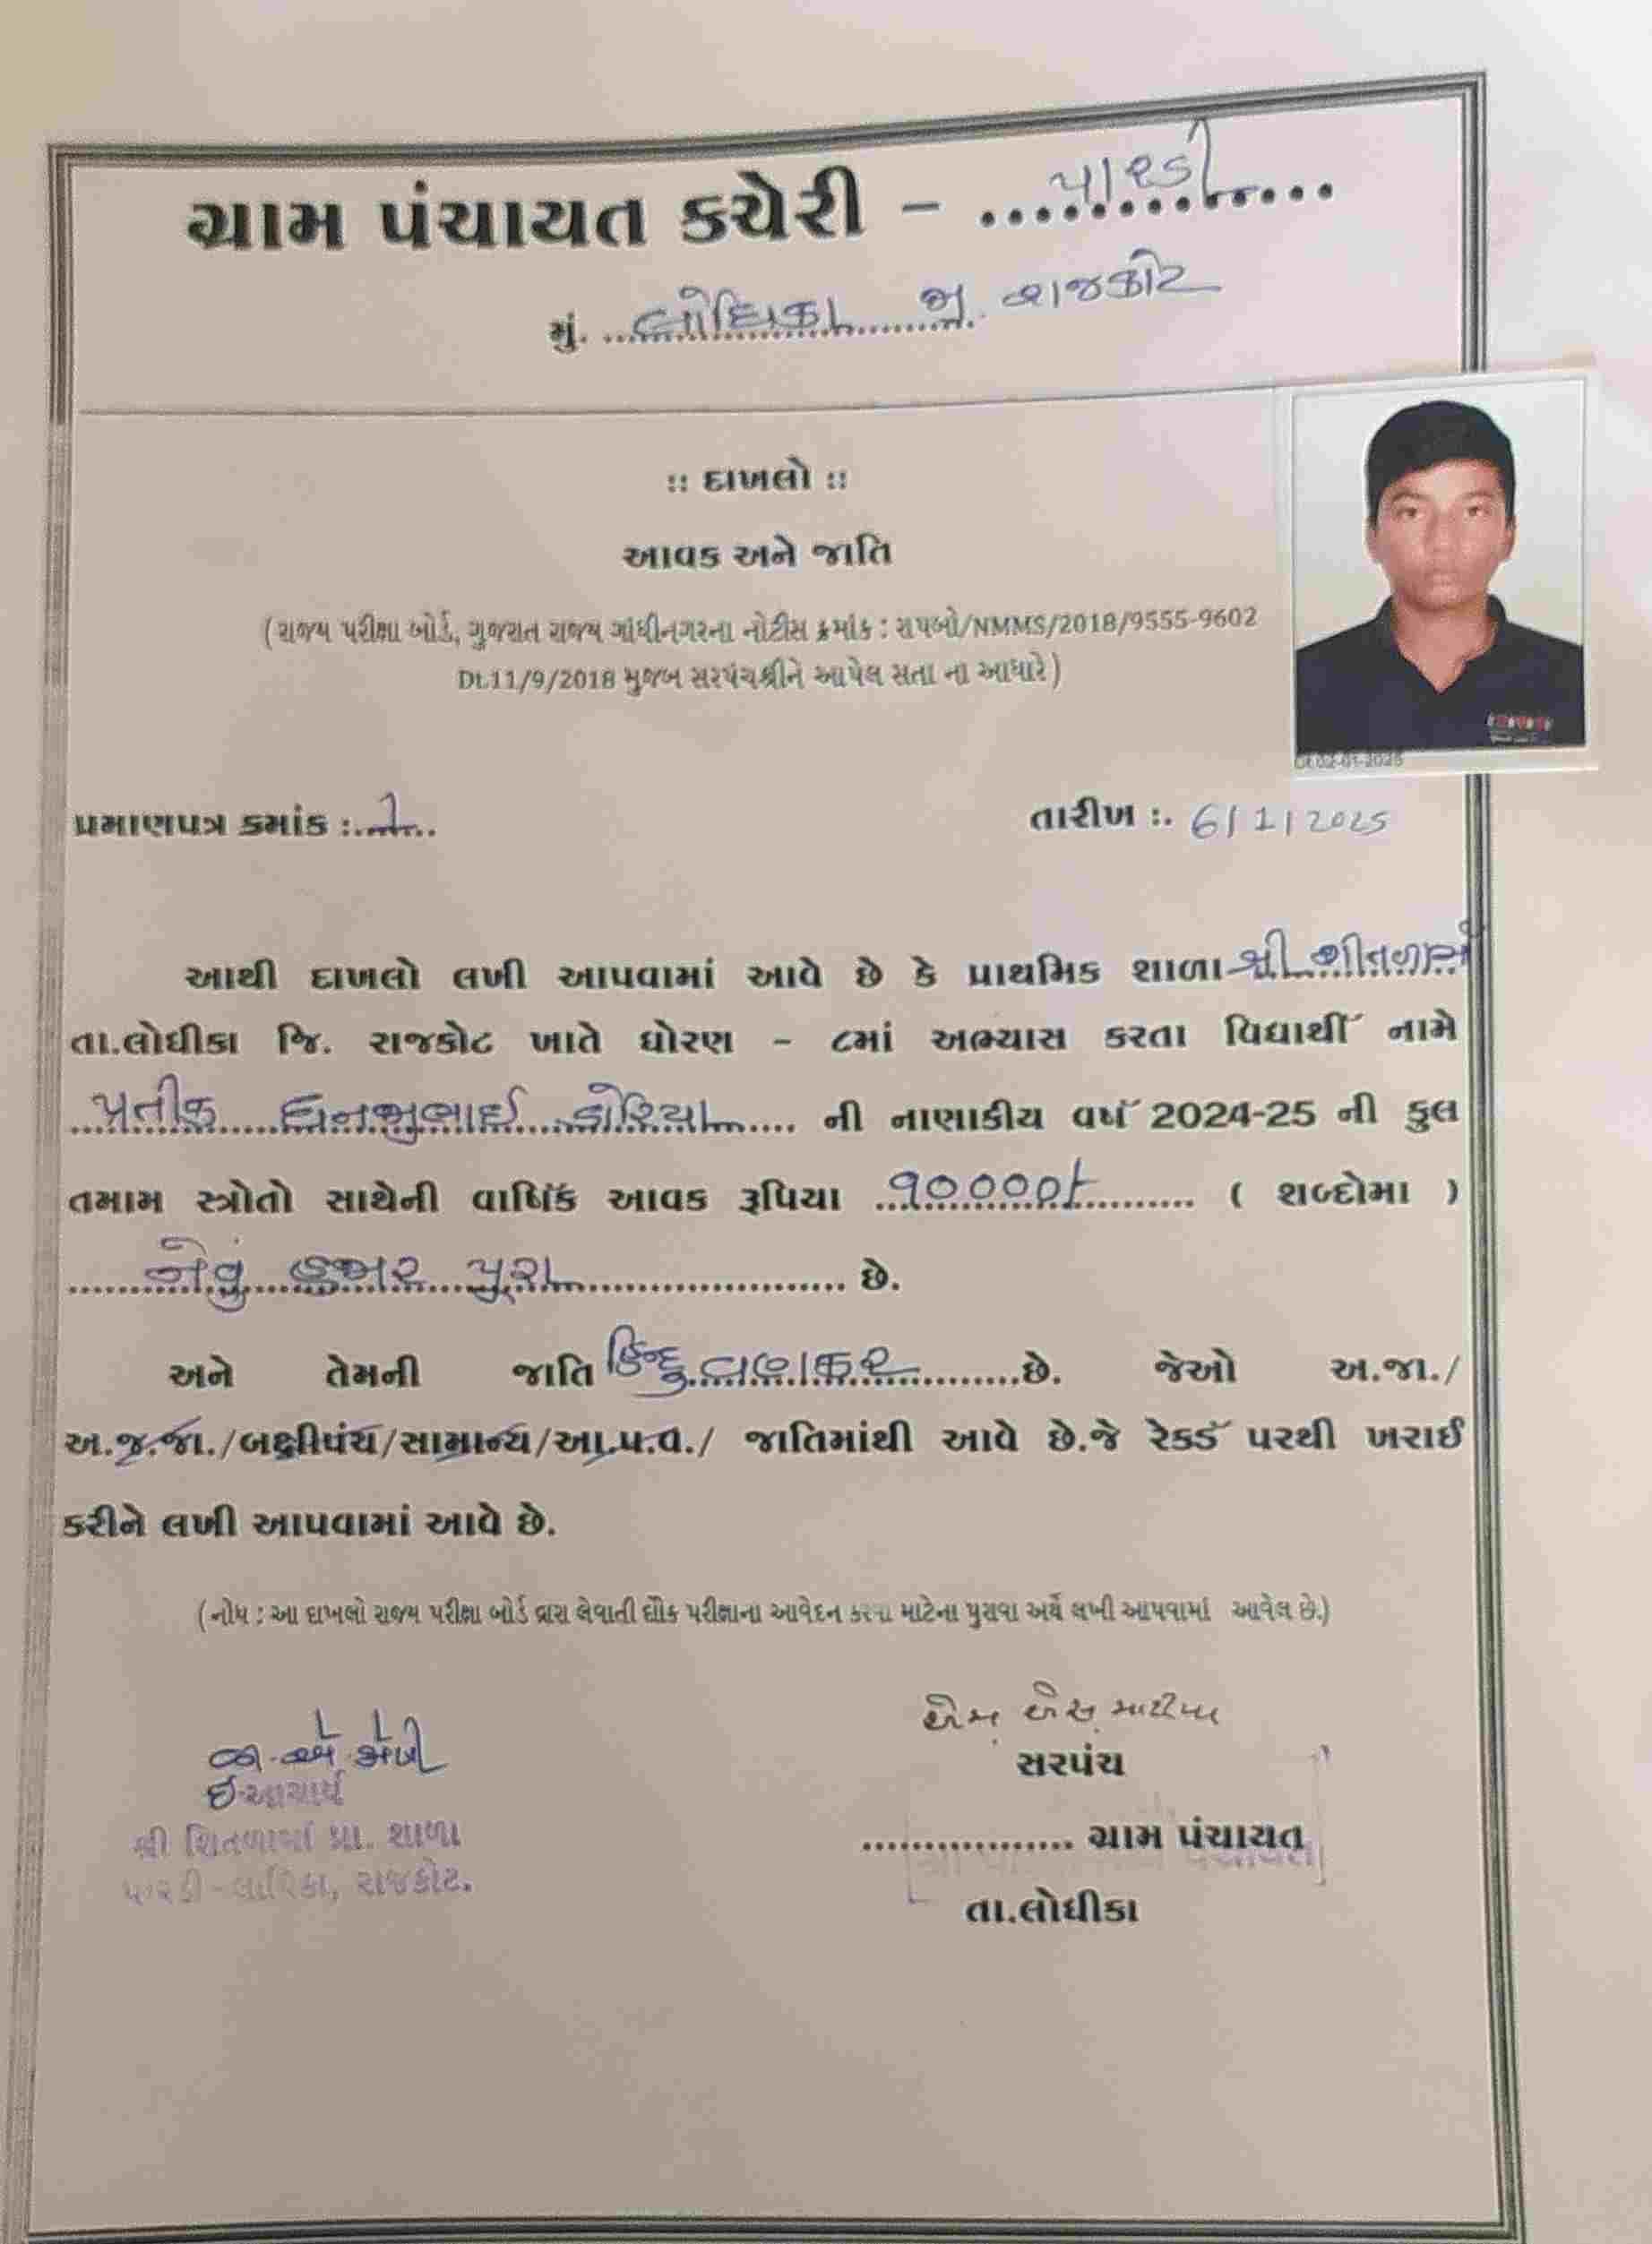 ગ્રામ પંચાયત કચેરી - પારડી
મું. લોધિકા જી. રાજકોટ
:: દાખલો ::
આવક અને જાતિ
(રાજ્ય પરીક્ષા બોર્ડ, ગુજરાત રાજ્ય ગાંધીનગરના નોટીસ ક્રમાંક : રાપબો/NMMS/2018/9555-9602
Dt.11/9/2018 મુજબ સરપંચશ્રીને આપેલ સતા ના આધારે)
Dt.02-01-2025
પ્રમાણપત્ર ક્રમાંક :. તારીખ :. 6/1/2025
આથી દાખલો લખી આપવામાં આવે છે કે પ્રાથમિક શાળા શ્રી શીતળામાં
તા.લોધીકા જિ. રાજકોટ ખાતે ધોરણ - ૮માં અભ્યાસ કરતા વિદ્યાર્થી નામે
પ્રતીક ધનજીભાઈ ની નાણાકીય વર્ષ 2024-25 ની કુલ
તમામ સ્ત્રોતો સાથેની વાર્ષિક આવક રૂપિયા ( શબ્દોમા )
નેવું હજાર પુરા છે.
અને તેમની જાતિ હિન્દુ વણકર છે. જેઓ અ.જા./
અ.જ.જા./બક્ષીપંચ/સામાન્ય/આ.પ.વ./ જાતિમાંથી આવે છે.જે રેકર્ડ પરથી ખરાઈ
કરીને લખી આપવામાં આવે છે.
(નોધ : આ દાખલો રાજ્ય પરીક્ષા બોર્ડ દ્વારા લેવાતી શૈક્ષિક પરીક્ષાના આવેદન કરવા માટેના પુરાવા અર્થે લખી આપવામાં આવેલ છે.)
એમ એસ
સરપંચ
ઈ.આચાર્ય
શ્રી શિતળામાં પ્રા. શાળા
ગ્રામ પંચાયત
પારડી - લોધિકા, રાજકોટ.
તા.લોધીકા